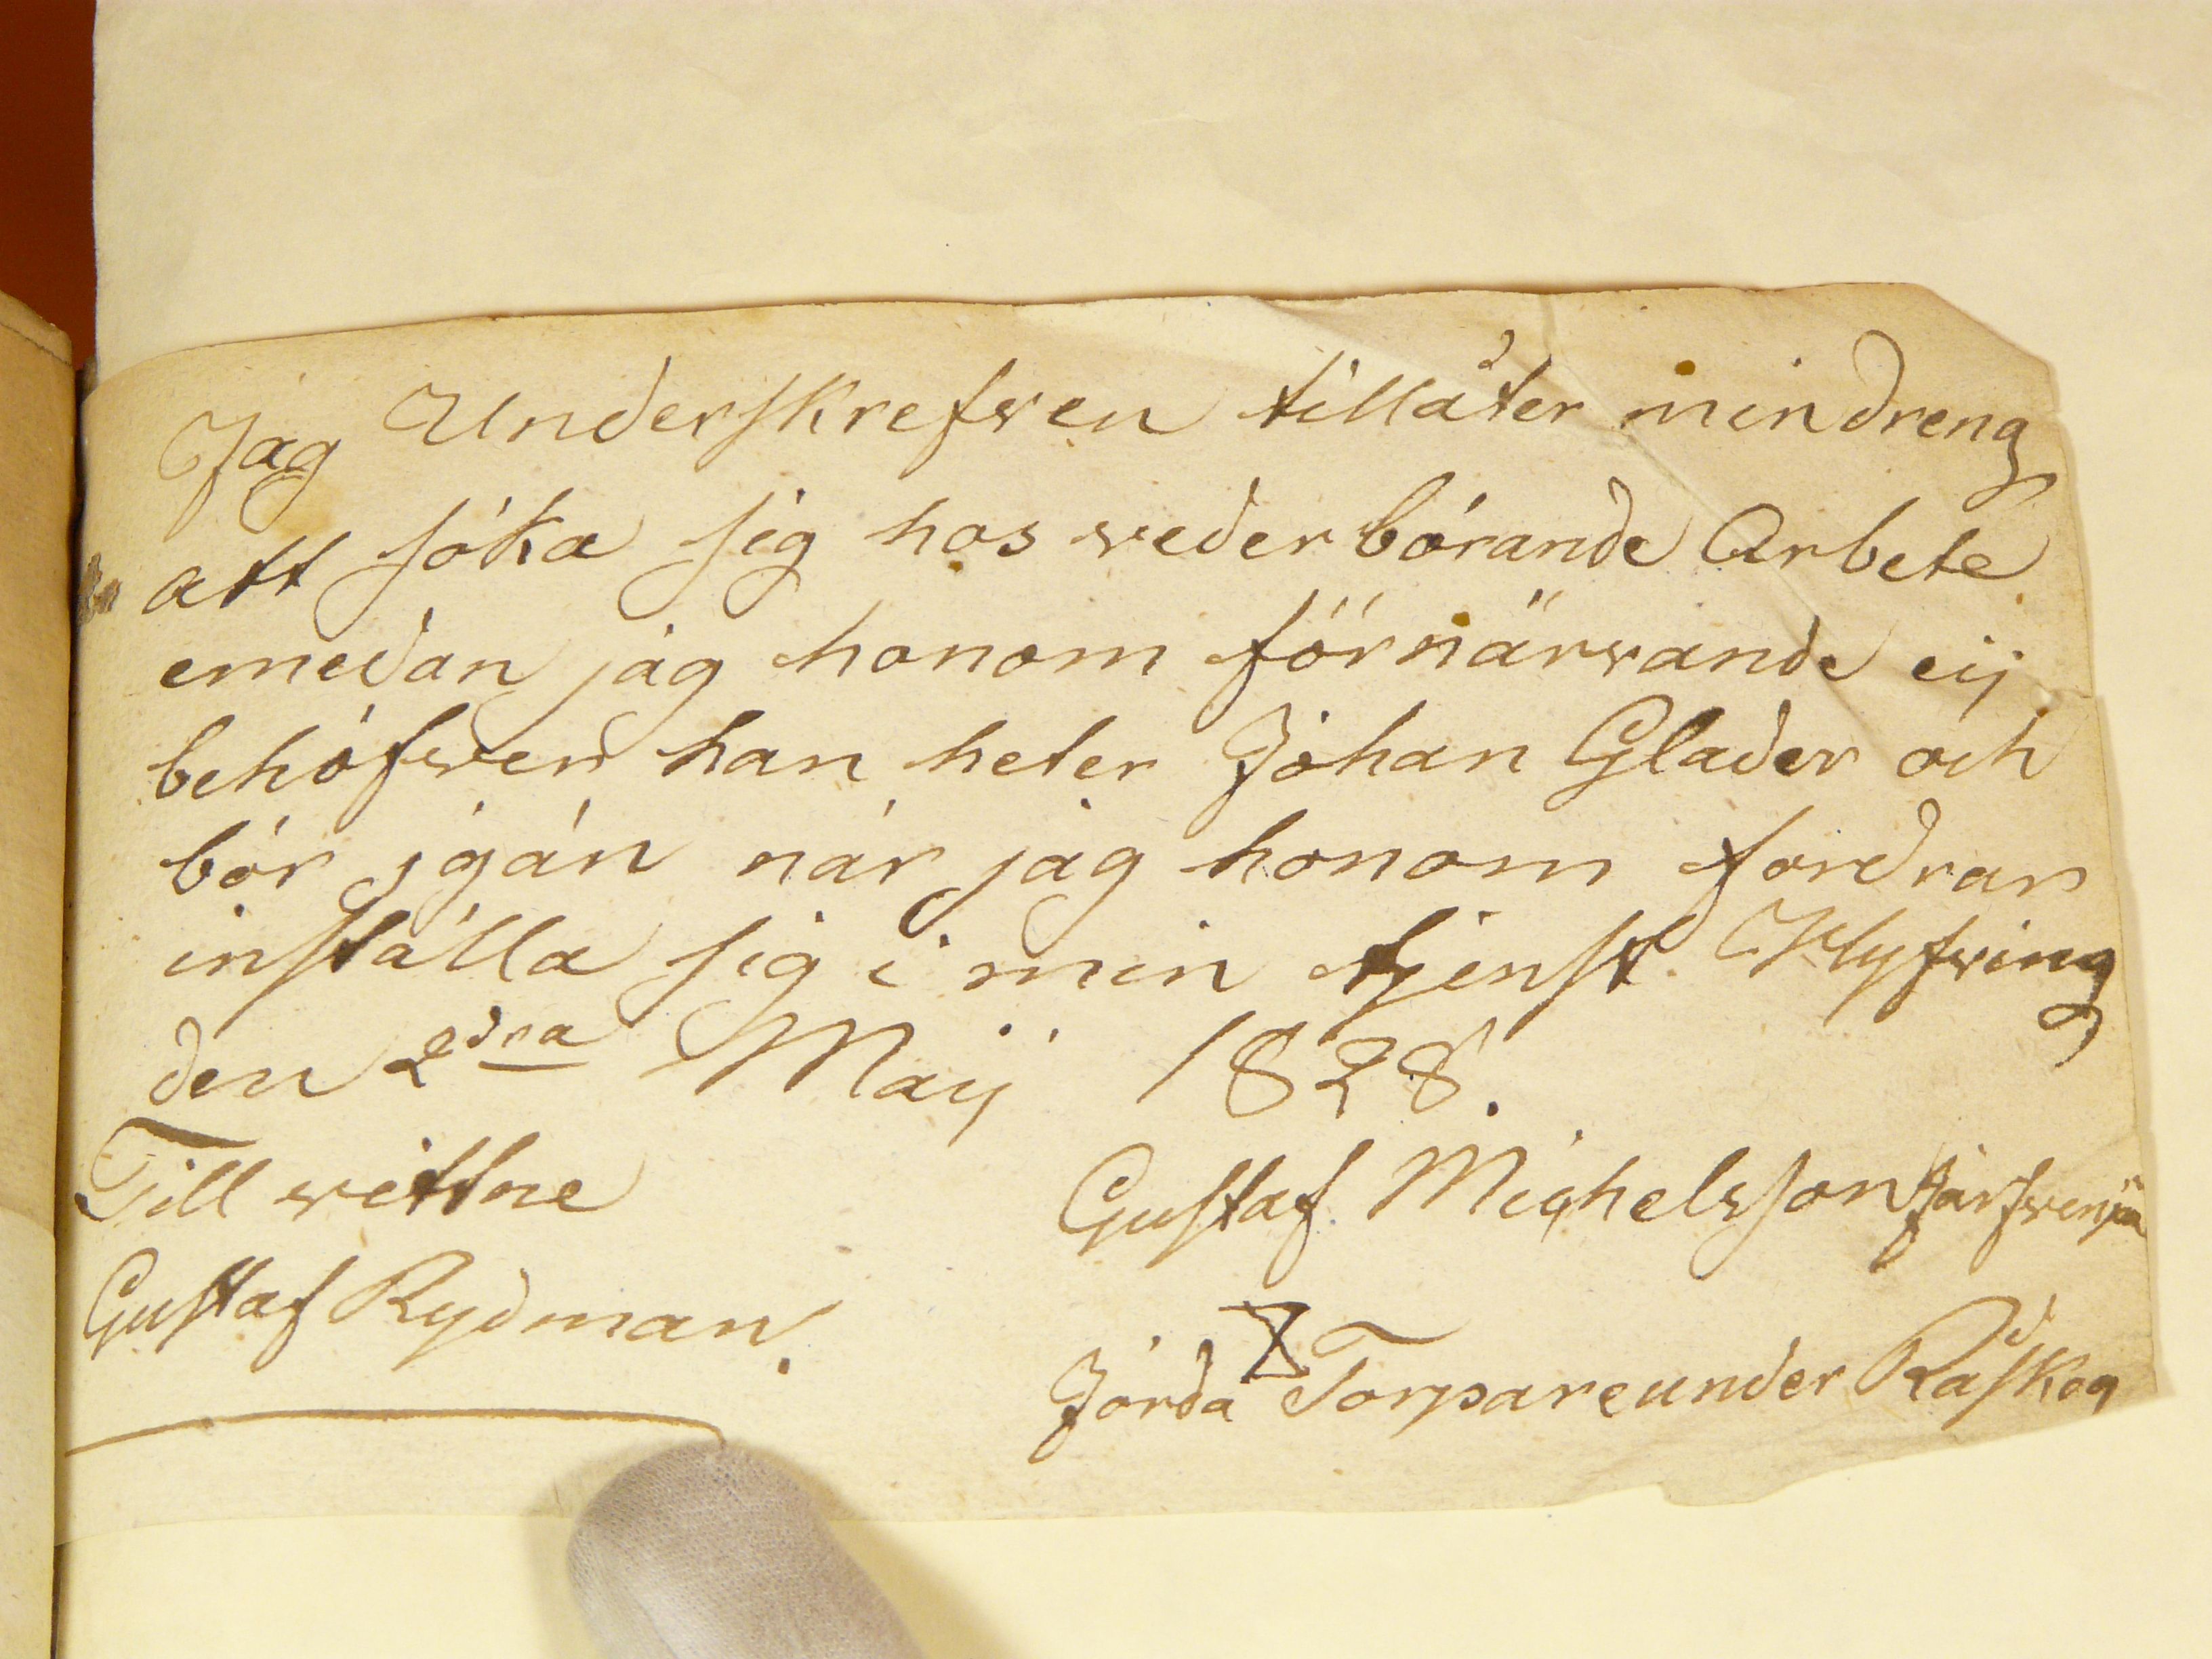 Jag Underskrefven tillåter min dreng
att söka sig hos vederbörande Arbete
emedan jag honom förnärvande eij
behöfver han heter Johan Glader och
bör igän när jag honom fordrar
inställa sig i min tjenst Klyfving
den 2dra Maij 1828.
Till vittne
Gustaf Michelsson
Gustaf Rydman.
Jorda Torpare under Råskog